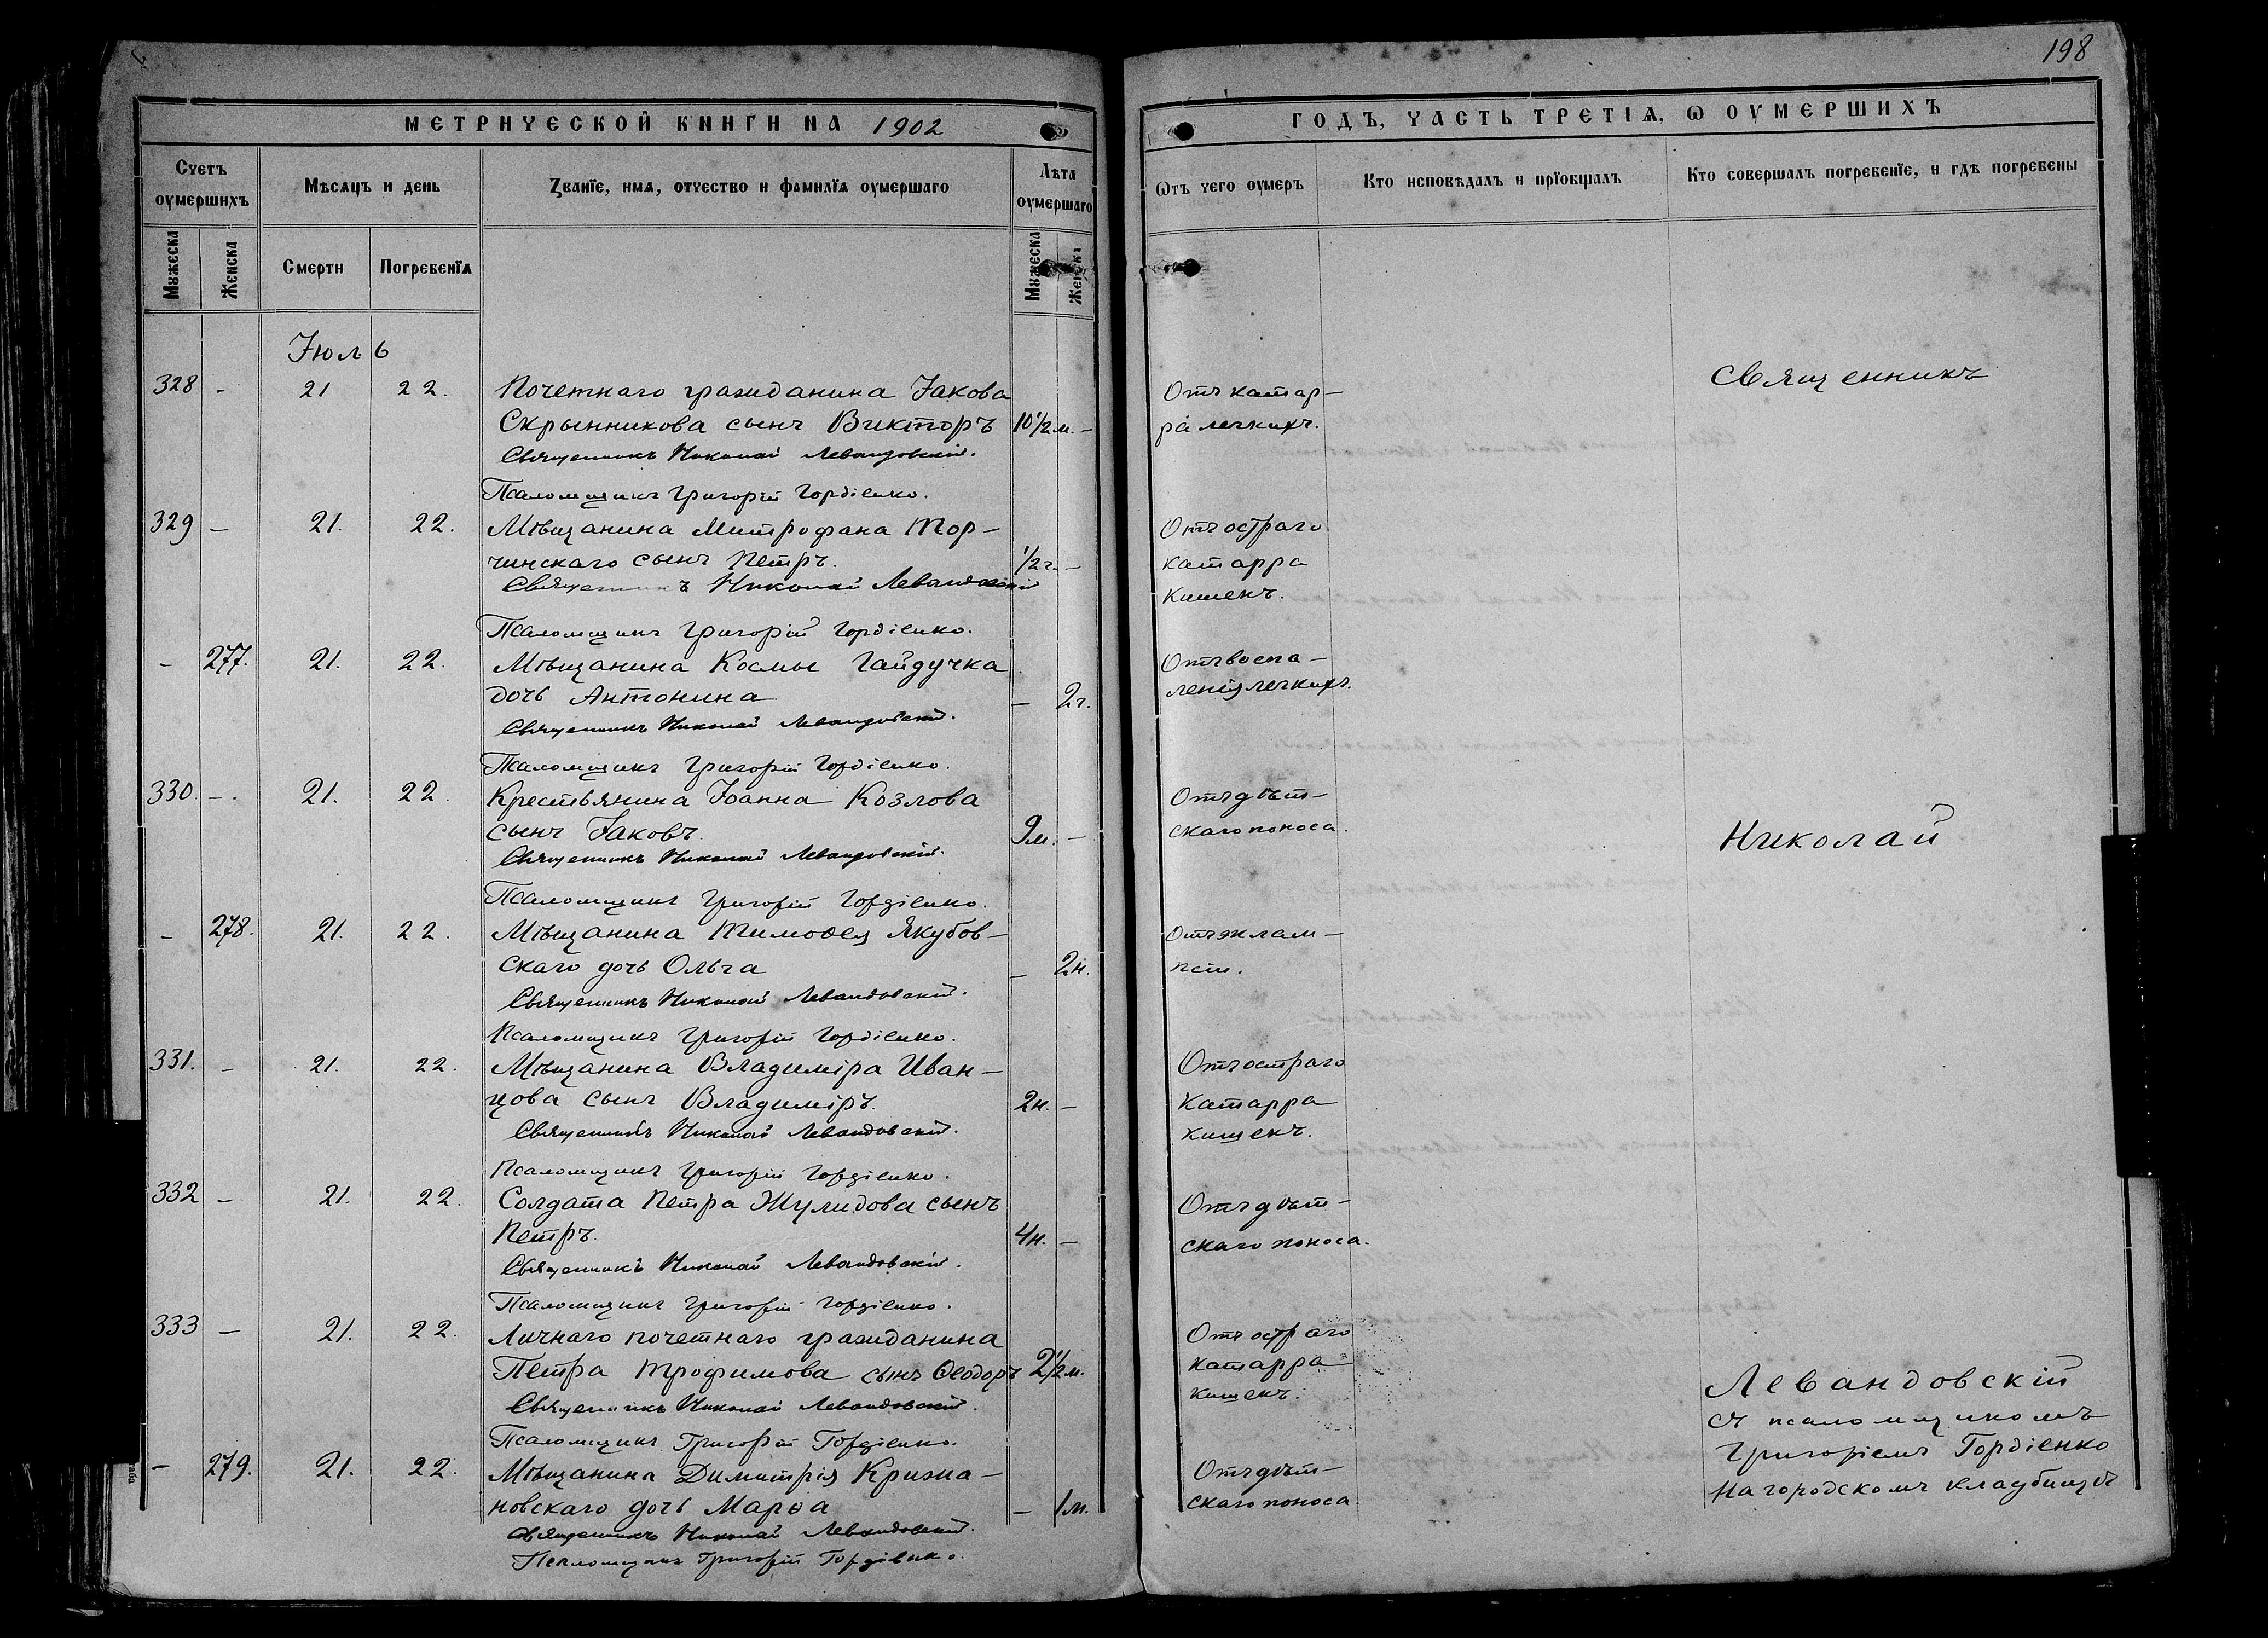 198
МЕТРИЧЕСКОЙ КНИГИ НА 1902
ГОДЪ, ЧАСТЬ ТРЕТІѦ, Ѡ ОУМЕРШИХЪ
Счетъ оумершихъ
Мѣсѧцъ и день
Званїе, имѧ, отчество и фамилїѧ оумершаго
Лѣта оумершаго
Ѿтъ чего оумеръ
Кто исповѣдалъ и прїобщалъ
Кто совершалъ погребенїе, и гдѣ погребены
Мужеска
Женска
Смерти
Погребенїѧ
Мужеска
Женска
Іюль
328 - 21 22. Почетнаго гражданина Іакова
Скрынникова сынъ Викторъ 10½ м. -
Священникъ Николай Левандовскій.
Псаломщикъ Григорій Гордіенко.
329 - 21. 22. Мѣщанина Митрофана Тор-
чинскаго сынъ Петръ. ½ г. -
Священникъ Николай Левандовскій
Псаломщикъ Григорій Гордіенко.
- 277. 21. 22. Мѣщанина Космы Гайдучка
дочь Антонина - 2 г.
Священникъ Николай Левандовскій.
Псаломщикъ Григорій Гордіенко.
330. -. 21. 22. Крестьянина Іоанна Козлова
сынъ Іаковъ. 9 м. -
Священникъ Николай Левандовскій.
Псаломщикъ Григорій Гордіенко.
- 278. 21. 22. Мѣщанина Тимоѳея Якубов-
скаго дочь Ольга - 2 н.
Священникъ Николай Левандовскій.
Псаломщикъ Григорій Гордіенко.
331. - 21. 22. Мѣщанина Владиміра Иван-
цова сынъ Владиміръ. 2 н. -
Священникъ Николай Левандовскій.
Псаломщикъ Григорій Гордіенко.
332 - 21. 22. Солдата Петра Жулидова сынъ
Петръ. 4 н. -
Священникъ Николай Левандовскій.
Псаломщикъ Григорій Гордіенко.
333 - 21. 22. Личнаго почетнаго гражданина
Петра Трофимова сынъ Ѳеодоръ 2½ м.
Священникъ Николай Левандовскій.
Псаломщикъ Григорій Гордіенко.
- 279. 21. 22. Мѣщанина Димитрія Крижа-
новскаго дочь Марѳа - 1 м.
Священникъ Николай Левандовскій.
Псаломщикъ Григорій Гордіенко.
Отъ катар-
ра легкихъ.
Отъ остраго
катарра
кишекъ.
Отъ воспа-
ленія легкихъ.
Отъ дѣт-
скаго поноса.
Отъ эклам-
псіи.
Отъ остраго
катарра
кишекъ.
Отъ дѣт-
скаго поноса.
Отъ остраго
катарра
кишекъ.
Отъ дѣт-
скаго поноса
Священникъ
Николай
Левандовскій
съ псаломщикомъ
Григоріемъ Гордіенко
На городскомъ кладбищѣ